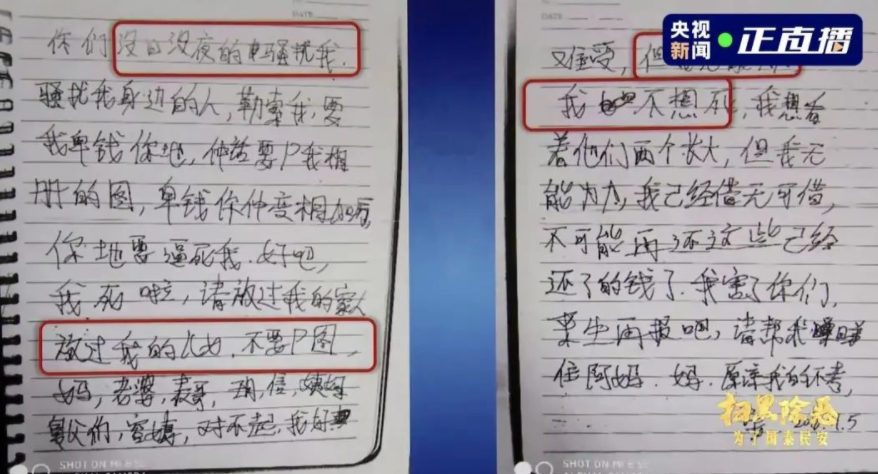 央视新闻 正直播
你们没日没夜的骚扰我.
骚扰我身边的人,勒索我,要
我畀钱你地,仲话要P我相
册的图,畀钱你仲变相加
你地要逼死我.好吧,
我死啦,请放过我的家人
放过我的儿女,不要P图,
妈,老婆,表哥,
舅父们,对不起,我好
难受,但
我不想死,我想看
着他们两个长大,但我无
能为力,我已经借无可借,
不可能再还这些已经
还了的钱了.我害了你们,
来生再报吧,请帮我
住阿妈.妈.原谅我的不孝,
扫黑除恶
为了国泰民安
SHOT ON MI 8 SE
SHOT ON MI 8 SE